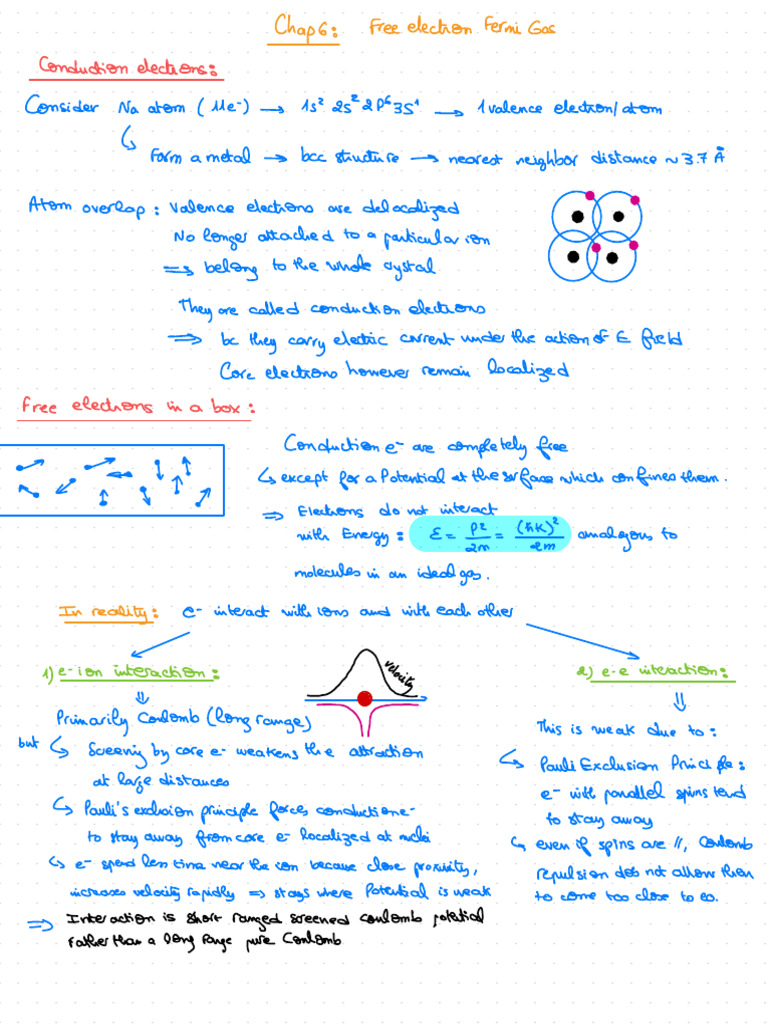 Chap 6: Free electron Fermi Gas
Conduction electrons:
Consider Na atom (11e⁻) → 1s² 2s² 2p⁶ 3s¹ → 1 valence electron/atom
↳ Form a metal → bcc structure → nearest neighbor distance ~ 3.7 Å
Atom overlap: valence electrons are delocalized
No longer attached to a particular ion
⇒ belong to the whole crystal
They are called conduction electrons
⇒ bc they carry electric current under the action of E field
Core electrons however remain localized
Free electrons in a box:
Conduction e⁻ are completely free
↳ except for a Potential at the surface which confines them.
⇒ Electrons do not interact
with Energy: ε = P²/2m = (ħk)²/2m analogous to
molecules in an ideal gas.
In reality: e⁻ interact with ions and with each other
1) e-ion interaction:
velocity
⇓
Primarily Coulomb (long range)
but ↳ Screening by core e⁻ weakens the attraction
at large distances
↳ Pauli's exclusion principle forces conduction e⁻
to stay away from core e⁻ localized at nuclei
↳ e⁻ spend less time near the ion because close proximity,
increases velocity rapidly ⇒ stays where Potential is weak
⇒ Interaction is short ranged screened coulomb potential
rather than a long range pure Coulomb
2) e-e interaction:
⇓
This is weak due to:
↳ Pauli Exclusion Principle:
e⁻ with parallel spins tend
to stay away
↳ even if spins are //, Coulomb
repulsion does not allow then
to come too close to eo.